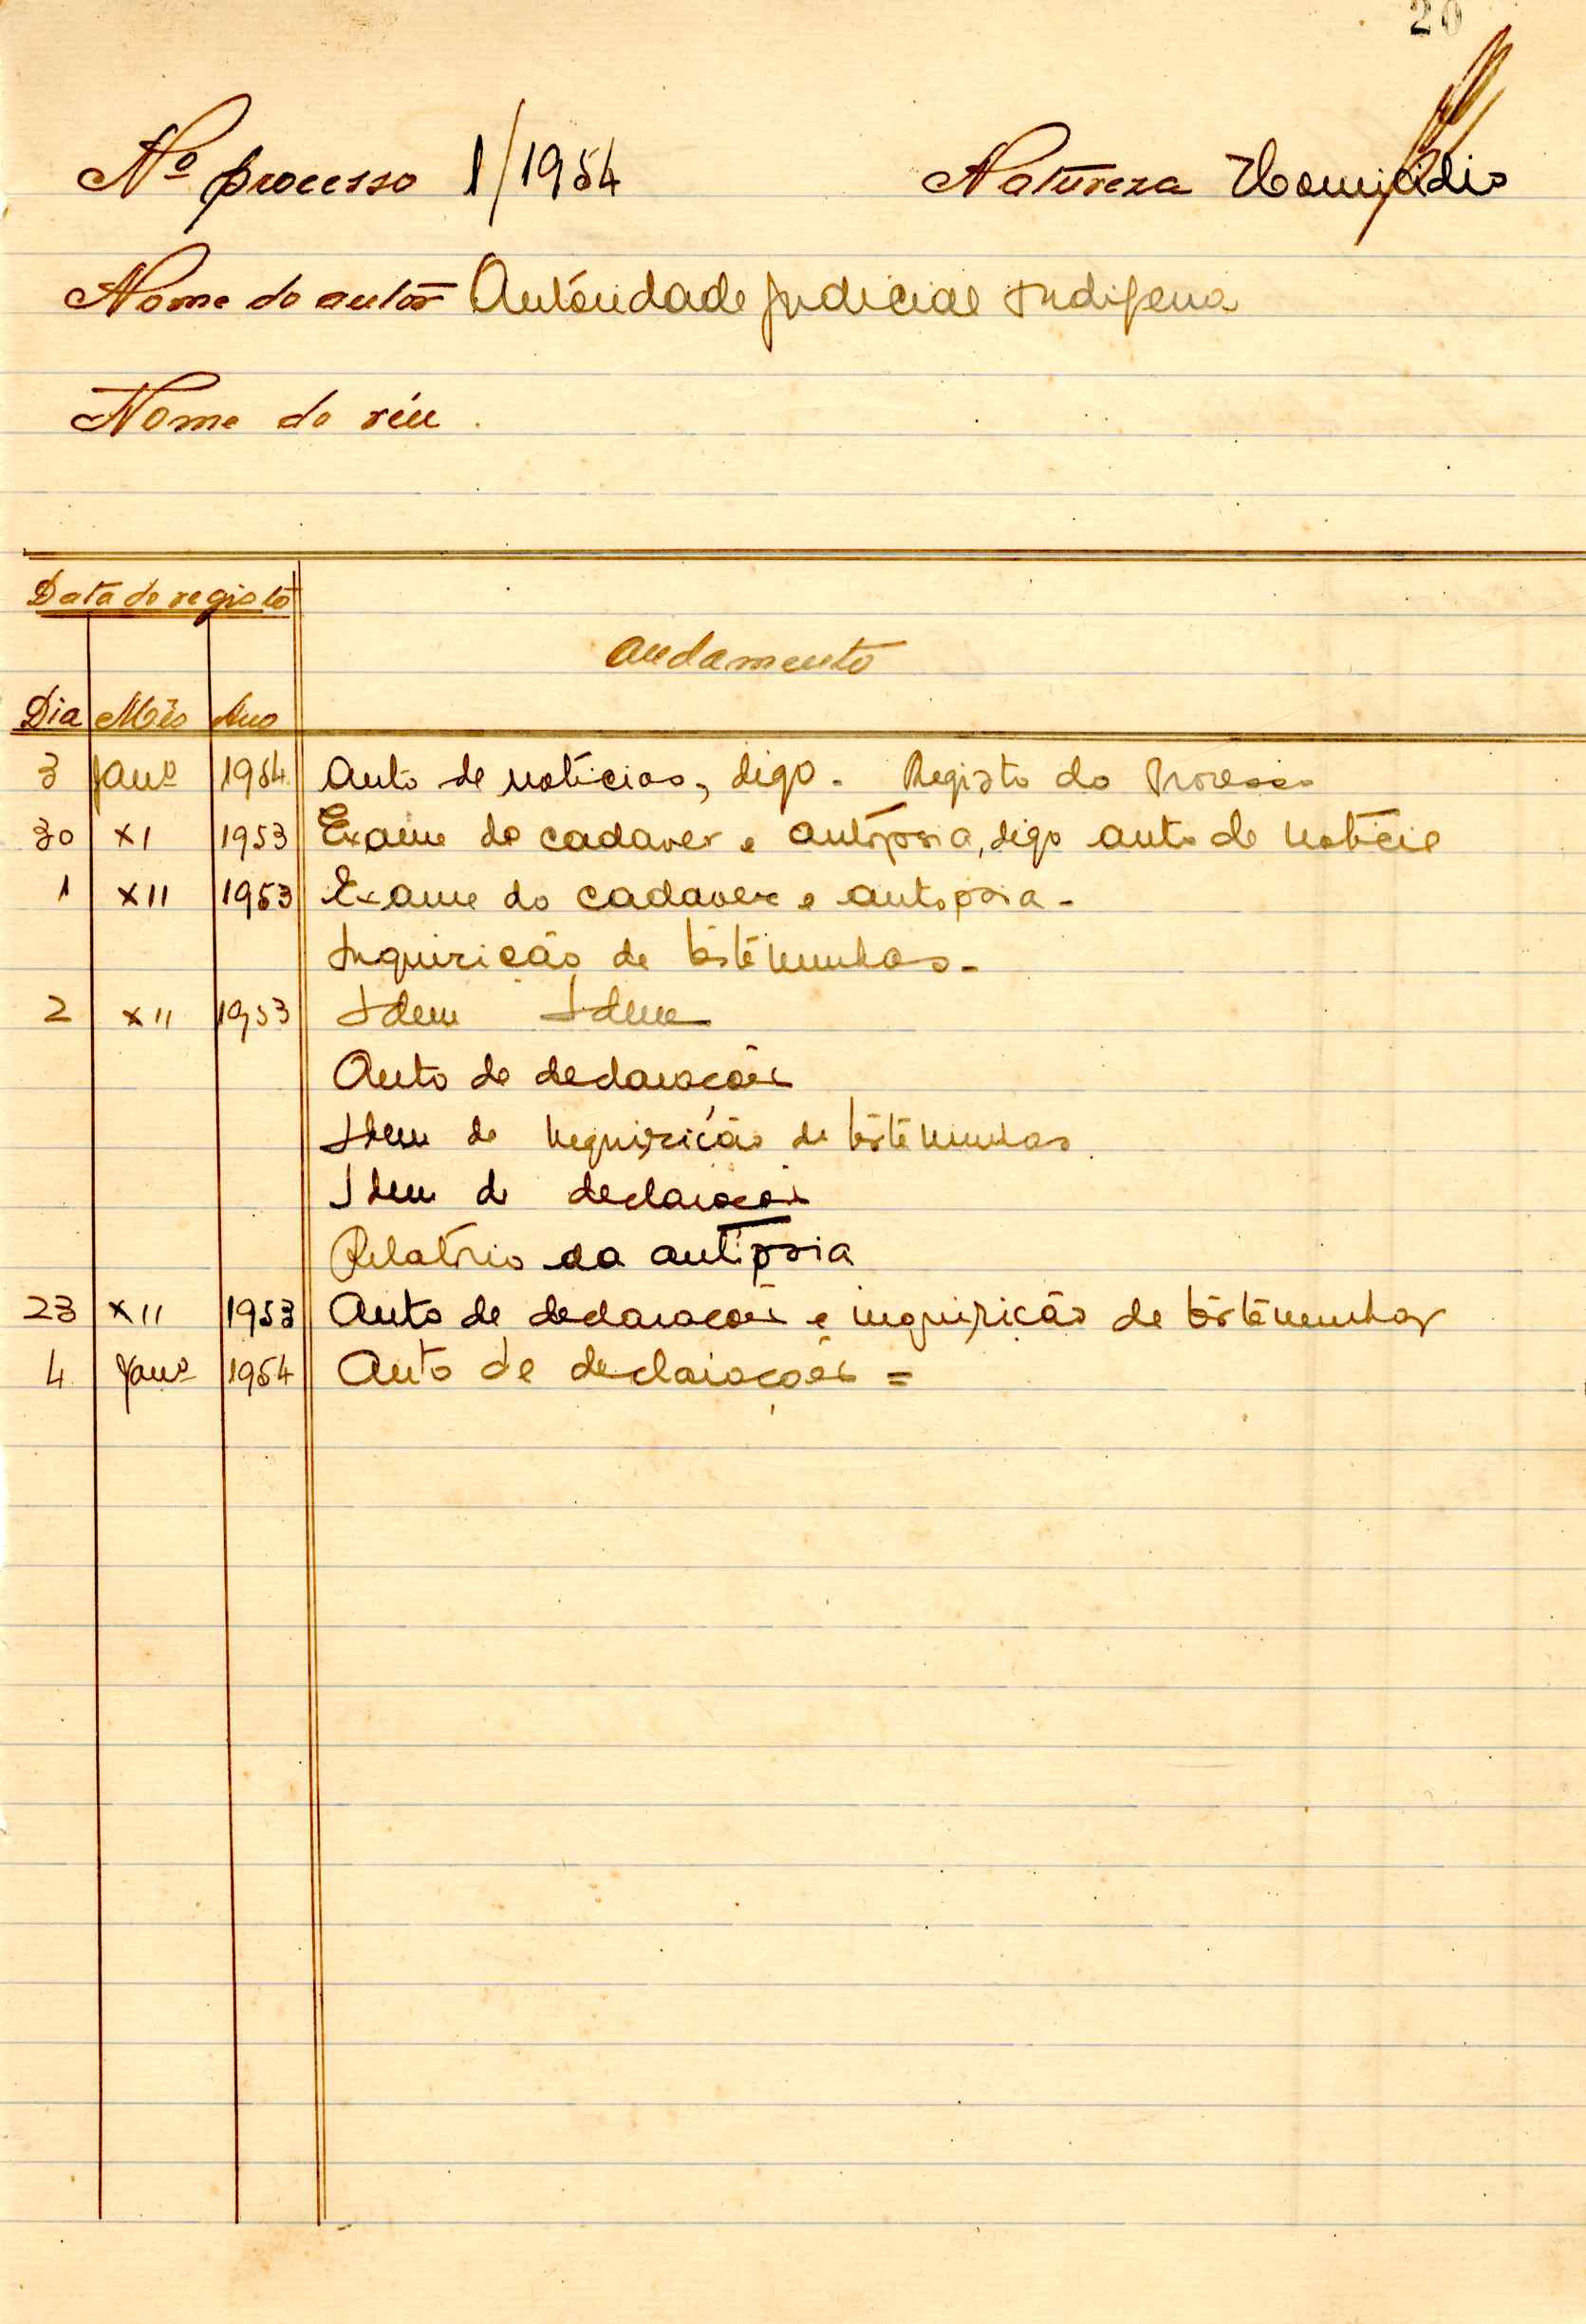 20
Nº processo 1/1954 Natureza Homicídio
Nome do autor Autóridade Judicial Indígena
Nome do réu
Data do registo
Andamento
Dia Mês Ano
3 Janº 1954 Auto de notícias, digo - Registo do Processo
30 XI 1953 Exame do cadaver e autópsia, digo auto de notície
1 XII 1953 Exame do cadaver e autopsia -
Inquirição de téstemunhas -
2 XII 1953 Idem Idem
Auto de declarações
Idem de inquirição de téstemunhas
Idem de declarações
Relatório da autópsia
23 XII 1953 Auto de declarações e inquirição de téstemunhas
4 Janº 1954 Auto de declarações =